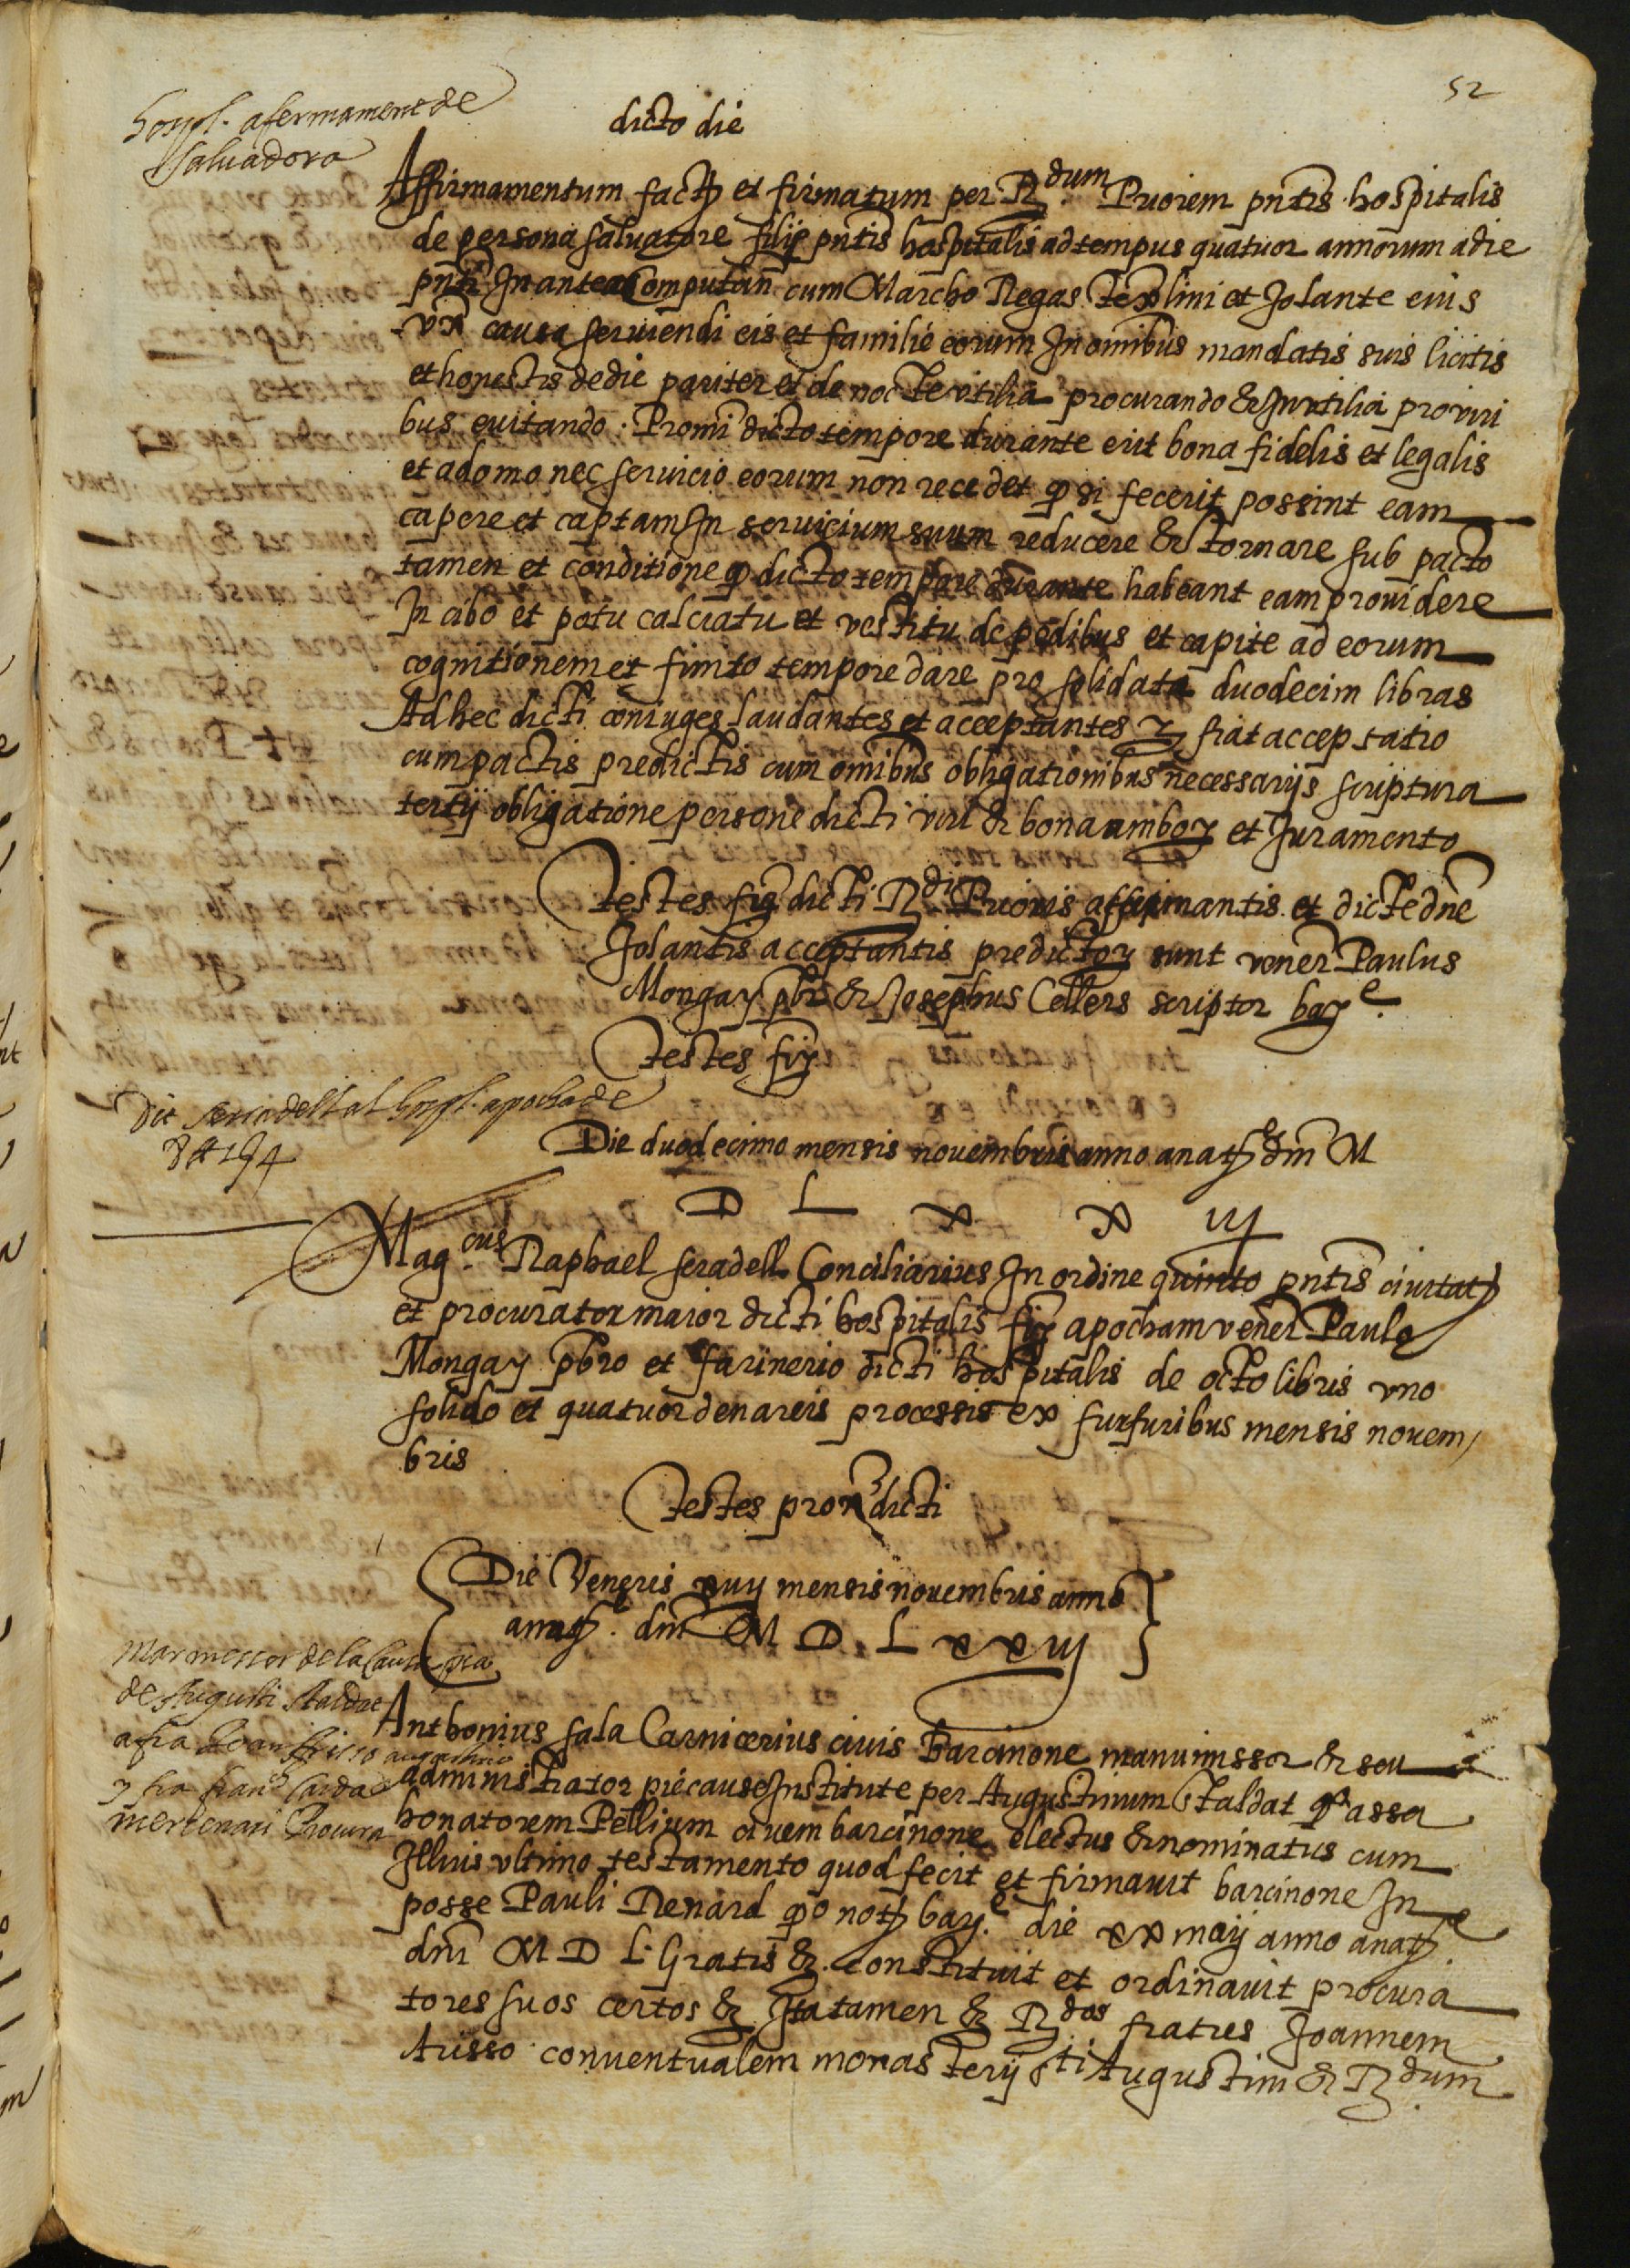 52
hospl. afermament de
salvadora
dicto die
Affirmamentum fact et firmatum per R.dum Priorem pntis hospitalis
de persona salvatore filie pntis hospitalis ad tempus quatuor annorum a die
pnti In antea Computan cum Marcho Regas Texlini et Jolante eius
vx causa serviendi eis et familie eorum In omnibus mandatis suis licitis
et honestis de die pariter et de nocte utilia procurando & Inutilia pro viri
bus evitando. Promi dicto tempore durante erit bona fidelis et legalis
et a domo nec servicio eorum non recedet q si fecerit possint eam
capere et captam In servicium suum reducere & tornare sub pacto
tamen et conditione q dicto tempore durante habeant eam providere
In cibo et potu calciatu et vestitu de pedibus et capite ad eorum
cognitionem et finito tempore dare pro solidata duodecim libras
Ad hec dicti coniuges laudantes et acceptantes & fiat acceptatio
cum pactis predictis cum omibus obligationibus necessarijs scriptura
tertij obligatione persone dicti viri & bona amboz et Juramento
Testes fir dicti R.di Prioris affirmantis et dicte dne
Jolantis acceptantis predictoz sunt vener Paulus
Mongay pbr & Josephus Cellers scriptor bar.e
Testes fir
Dit Serradell al hospl. apocha de
8 ll 1 s 4
Die duodecimo mensis novembris anno a nat.e dni M
D L x x iij
Mag.cus Raphael seradell Conciliarius In ordine quinto pntis civitat
et procurator maior dicti hospitalis fir apocham vener Paulo
Mongay pbro et farinerio dicti hospitalis de octo libris uno
solido et quatuor denareis processis ex furfuribus mensis novem
bris
Testes prox dicti
Die Veneris xiiij mensis novembris anno
a nat.e dni M D L x x iij
Marmessor de la causa pia
de Augusti Staldat
a fra Joan Frisso augustino
y fra Franc Carda
mercenari Procura
Anthonius sala Carnicerius civis barcinone manumissor & seu
administrator pie cause Institute per Augustinum Staldat q assa
honatorem Pellium civem barcinone electus & nominatus cum
Illius ultimo testamento quod fecit et firmavit barcinone In
posse Pauli Renard qo not bar.e die xx maij anno a nat.e
dni M D L. Gratis &. constituit et ordinavit procura
tores suos certos & Ita tamen & R.dos fratres Joannem
Frisso conventualem monasterij sti Augustini & R.dum